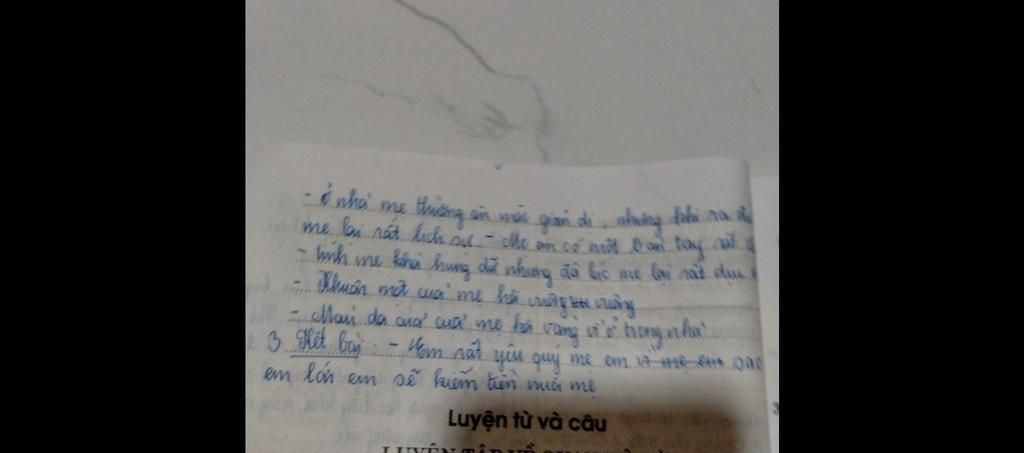 - ở nhà mẹ thường ăn mặc giản dị, nhưng khi ra đ
mẹ lại rất lịch sự - Mẹ an có một bàn tay rất
- tính mẹ khá hung dữ nhưng đã lúc mẹ lại rất dịu
- Khuôn mặt cuả mẹ hơi vuông vuông
- Màu da cuả cuả mẹ hơi vàng vì ở trong nhà
3. Kết bài: - Em rất yêu quý mẹ em vì mẹ em sao
em lớn em sẽ kiếm tiền nuôi mẹ
Luyện từ và câu